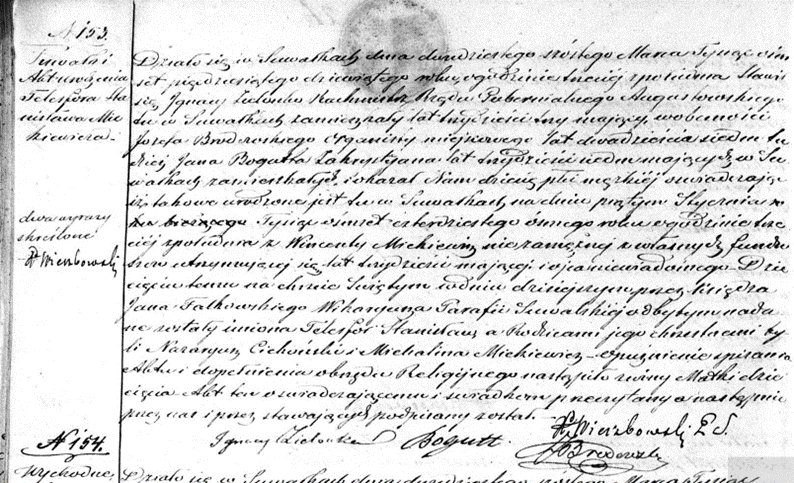 N 153.
Suwałki
Akt urodzenia
Telesfora Sta
nisława Mic
kiewicza.
dwa wyrazy
skréślone
Wierzbowski
Działo się w Suwałkach dnia dwudziestego szóstego Marca Tysiąc ośm
set pięćdziesiątego dziewiątego roku, o godzinie trzeciej z południa. Stawił
się Ignacy Zielonka Rachmistrz Rządu Gubernialnego Augustowskiego
tu w Suwałkach zamieszkały lat trzydzieści trzy mający, w obecności
Józefa Brodowskiego Organisty miejscowego lat dwadzieścia siedm tu
dzież Jana Bogutta Zakrystyana lat trzydzieści siedm mających w Su
wałkach zamieszkałych, i okazał Nam dziecię płci męzkiej oświadczając
iż takowe urodzone jest tu w Suwałkach na dniu piątym Stycznia
bieżącego Tysiąc ośmset czterdziestego ósmego roku o godzinie trze
ciej z południa z Wincenty Mickiewicz niezamężnej z własnych fundu
szów utrzymującej się lat trzydzieści mającej i ojca niewiadomego. Dzie
cięciu temu na chrzcie Świętym w dniu dzisiejszym przez Księdza
Jana Falkowskiego Wikaryusza Parafii Suwalskiej odbytym nada
ne zostały imiona Telesfor Stanisław, a Rodzicami jego chrzestnemi by
li Nazaryusz Cichoński i Michalina Mickiewicz. Opóźnienie spisania
Aktu i dopełnienia obrzędu Religijnego nastąpiło z winy Matki dzie
cięcia. Akt ten oświadczającemu i świadkom przeczytany a następnie
przez nas i przez stawających podpisany został.
Ignacy Zielonka Bogutt. Wierzbowski
Brodowski
N 154.
Wychodne
Działo się w Suwałkach dnia dwudziestego szóstego Marca Tysiąc